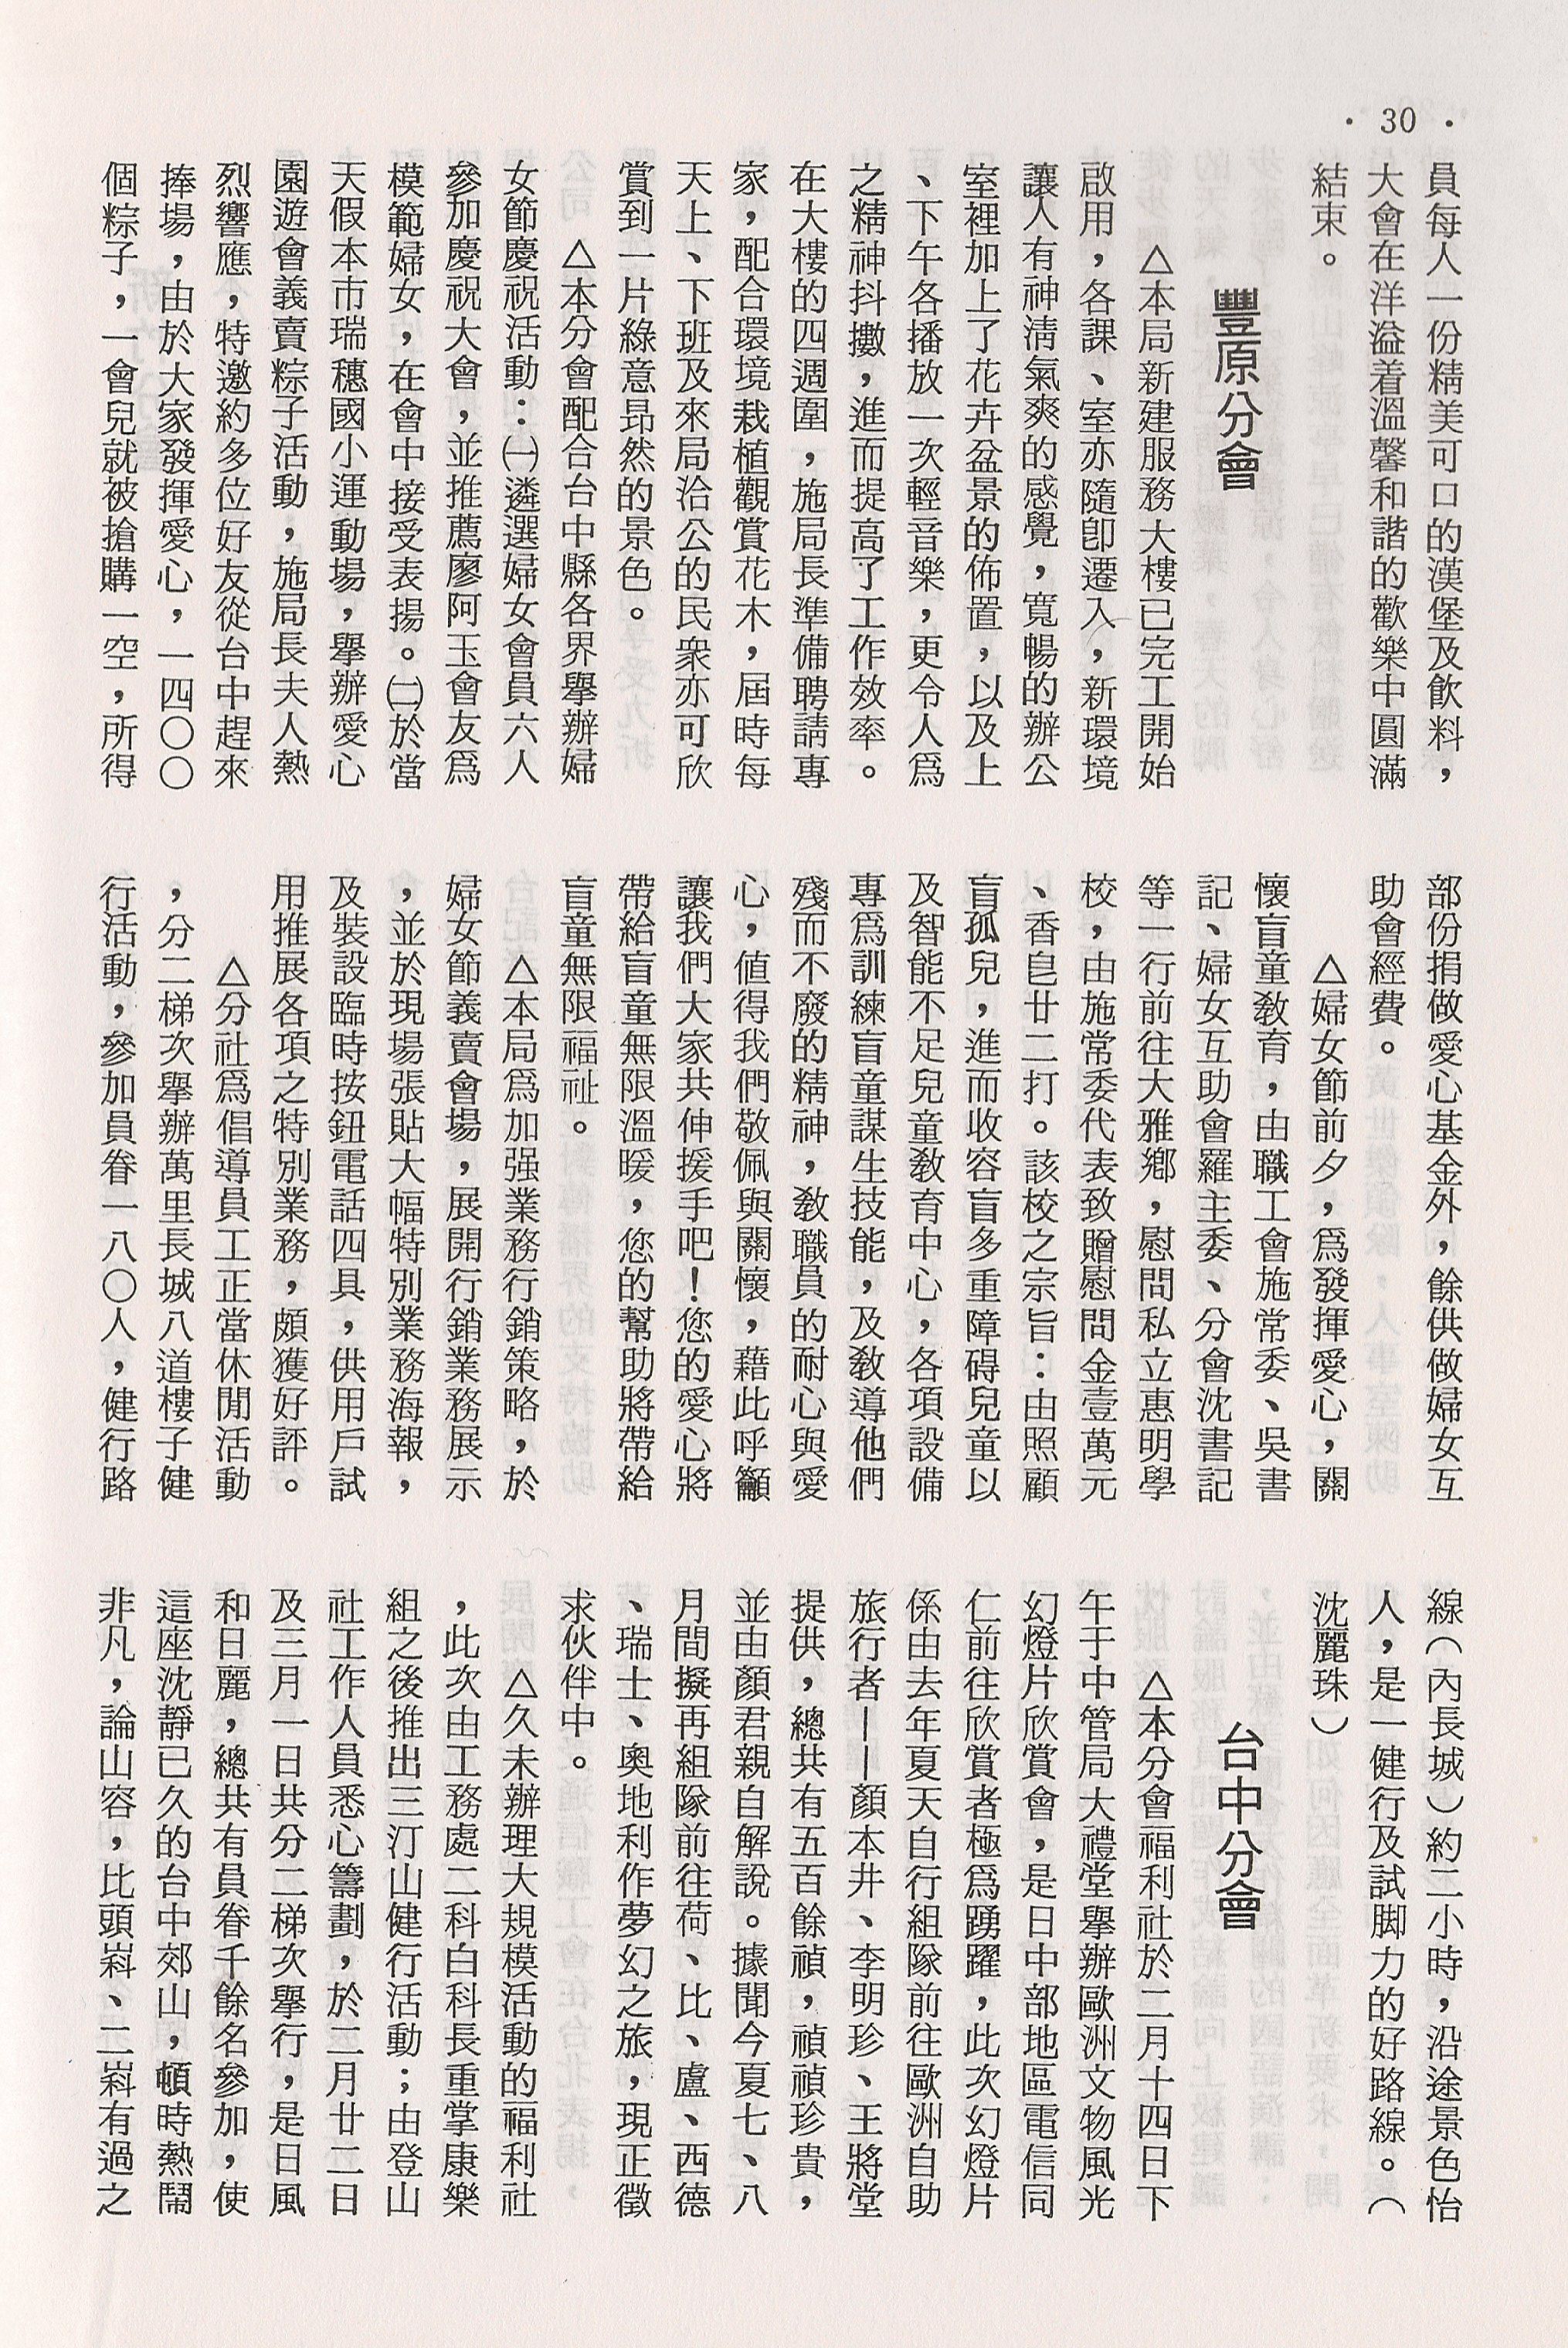 · 30 ·
員每人一份精美可口的漢堡及飲料，
大會在洋溢着溫馨和諧的歡樂中圓滿
結束。
豐原分會
△本局新建服務大樓已完工開始
啟用，各課、室亦隨卽遷入，新環境
讓人有神淸氣爽的感覺，寬暢的辦公
室裡加上了花卉盆景的佈置，以及上
、下午各播放一次輕音樂，更令人爲
之精神抖擻，進而提高了工作效率。
在大樓的四週圍，施局長準備聘請專
家，配合環境栽植觀賞花木，屆時每
天上、下班及來局洽公的民衆亦可欣
賞到一片綠意昂然的景色。
△本分會配合台中縣各界舉辦婦
女節慶祝活動：㈠遴選婦女會員六人
參加慶祝大會，並推薦廖阿玉會友爲
模範婦女，在會中接受表揚。㈡於當
天假本市瑞穗國小運動場，舉辦愛心
園遊會義賣粽子活動，施局長夫人熱
烈響應，特邀約多位好友從台中趕來
捧場，由於大家發揮愛心，一四〇〇
個粽子，一會兒就被搶購一空，所得
部份捐做愛心基金外，餘供做婦女互
助會經費。
△婦女節前夕，爲發揮愛心，關
懷盲童敎育，由職工會施常委、吳書
記、婦女互助會羅主委、分會沈書記
等一行前往大雅鄉，慰問私立惠明學
校，由施常委代表致贈慰問金壹萬元
、香皂廿二打。該校之宗旨：由照顧
盲孤兒，進而收容盲多重障碍兒童以
及智能不足兒童敎育中心，各項設備
專爲訓練盲童謀生技能，及敎導他們
殘而不廢的精神，敎職員的耐心與愛
心，値得我們敬佩與關懷，藉此呼籲
讓我們大家共伸援手吧！您的愛心將
帶給盲童無限溫暖，您的幫助將帶給
盲童無限福祉。
△本局爲加强業務行銷策略，於
婦女節義賣會場，展開行銷業務展示
，並於現場張貼大幅特別業務海報，
及裝設臨時按鈕電話四具，供用戶試
用推展各項之特別業務，頗獲好評。
△分社爲倡導員工正當休閒活動
，分二梯次舉辦萬里長城八道樓子健
行活動，參加員眷一八〇人，健行路
線（內長城）約二小時，沿途景色怡
人，是一健行及試脚力的好路線。（
沈麗珠）
台中分會
△本分會福利社於二月十四日下
午于中管局大禮堂舉辦歐洲文物風光
幻燈片欣賞會，是日中部地區電信同
仁前往欣賞者極爲踴躍，此次幻燈片
係由去年夏天自行組隊前往歐洲自助
旅行者——顏本井、李明珍、王將堂
提供，總共有五百餘禎，禎禎珍貴，
並由顏君親自解說。據聞今夏七、八
月間擬再組隊前往荷、比、盧、西德
、瑞士、奧地利作夢幻之旅，現正徵
求伙伴中。
△久未辦理大規模活動的福利社
，此次由工務處二科白科長重掌康樂
組之後推出三汀山健行活動；由登山
社工作人員悉心籌劃，於二月廿二日
及三月一日共分二梯次舉行，是日風
和日麗，總共有員眷千餘名參加，使
這座沈靜已久的台中郊山，頓時熱鬧
非凡，論山容，比頭嵙、二嵙有過之